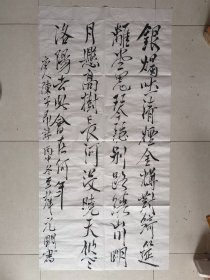 銀燭吐清煙金樽對綺筵
離堂思琴瑟別路繞山川明
月懸高樹長河沒曉天悠悠
洛陽去此會在何年
唐人陳子昂詩